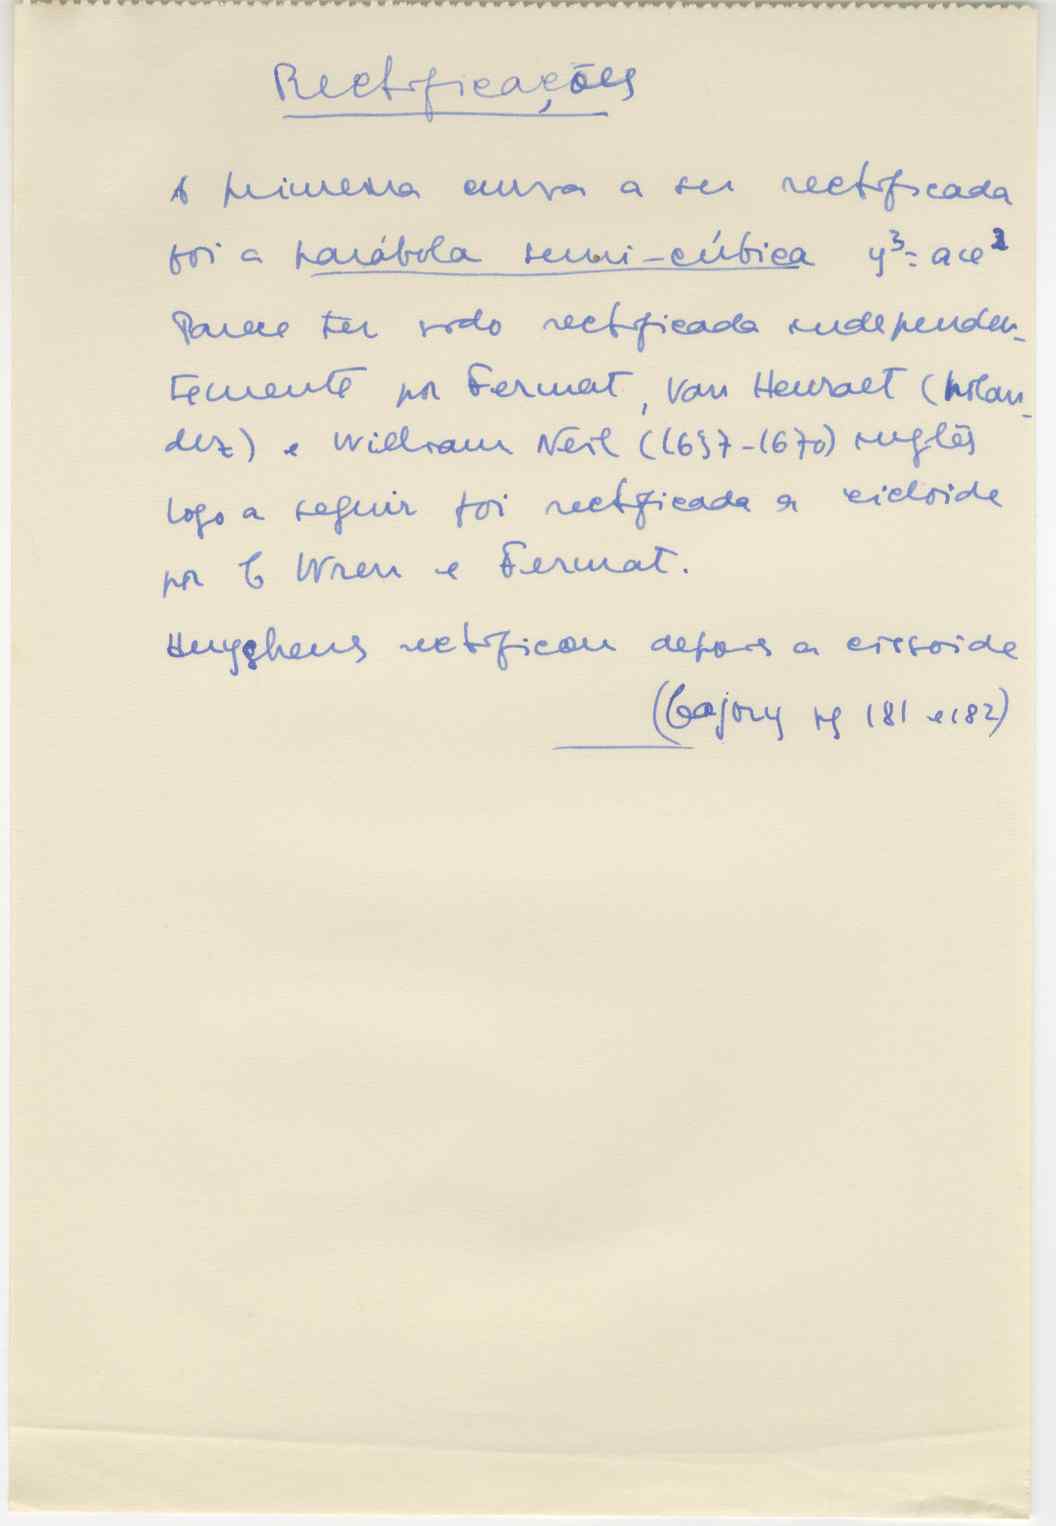 Rectificações
A primeira curva a ser rectificada
foi a parábola semi-cúbica y³ = ax²
Parece ter sido rectificada independen-
temente por Fermat, Van Heuraet (holan-
dez) e William Neil (1637-1670) inglês
logo a seguir foi rectificada a cicloide
por C Wren e Fermat.
Huyghens rectificou depois a cissoide
(Cajory pg 181 e 182)